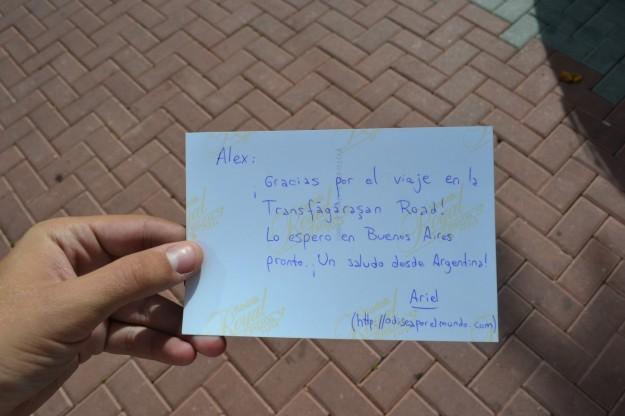 Alex:
¡Gracias por el viaje en la
Transfăgărașan Road!
Lo espero en Buenos Aires
pronto. ¡Un saludo desde Argentina!
Ariel
(http://odiseaporelmundo.com)